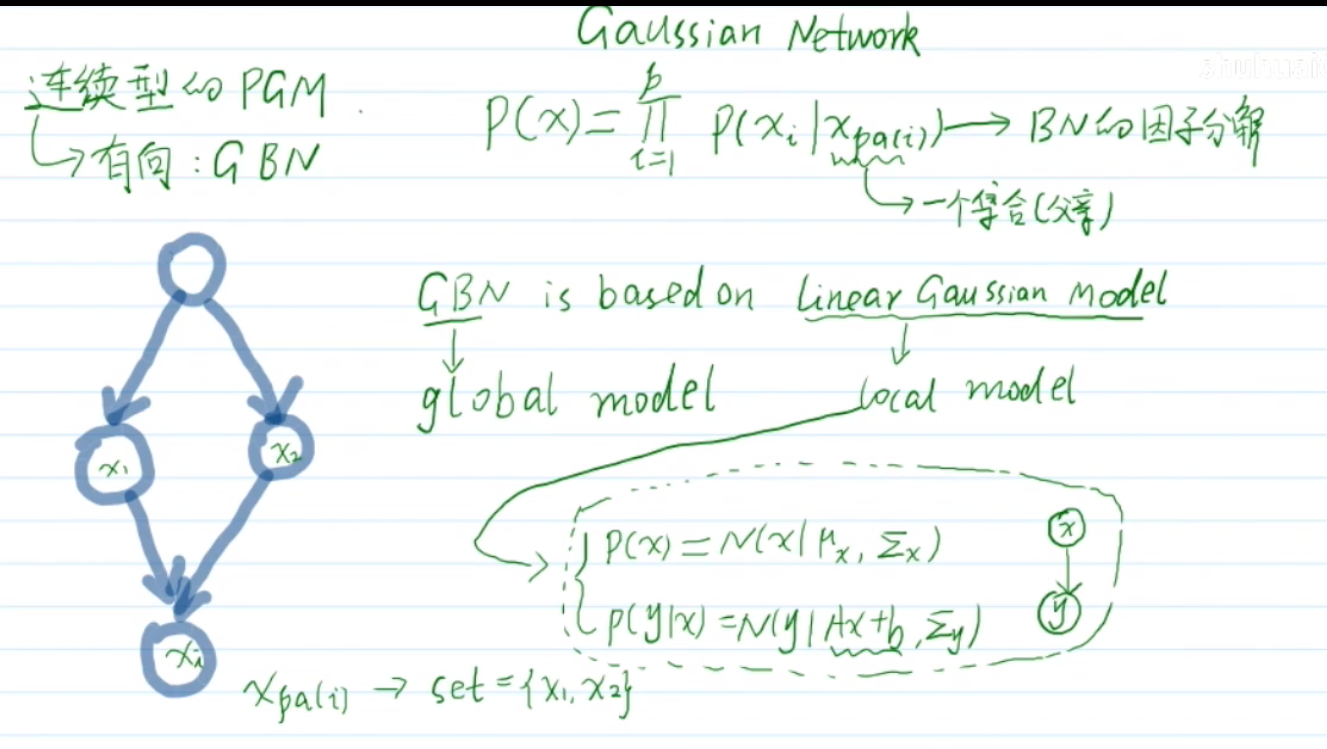 Gaussian Network
shuhuai
连续型的 PGM
↳ 有向: GBN
P(x) = ∏_{i=1}^{p} P(x_i | x_{pa(i)}) → BN的因子分解
↳ 一个集合(父亲)
GBN is based on Linear Gaussian Model
↓ ↓
global model local model
x₁ x₂
P(x) = N(x | μ_x, Σ_x) x
P(y|x) = N(y | Ax+b, Σ_y) y
x_i
x_{pa(i)} → set = {x₁, x₂}